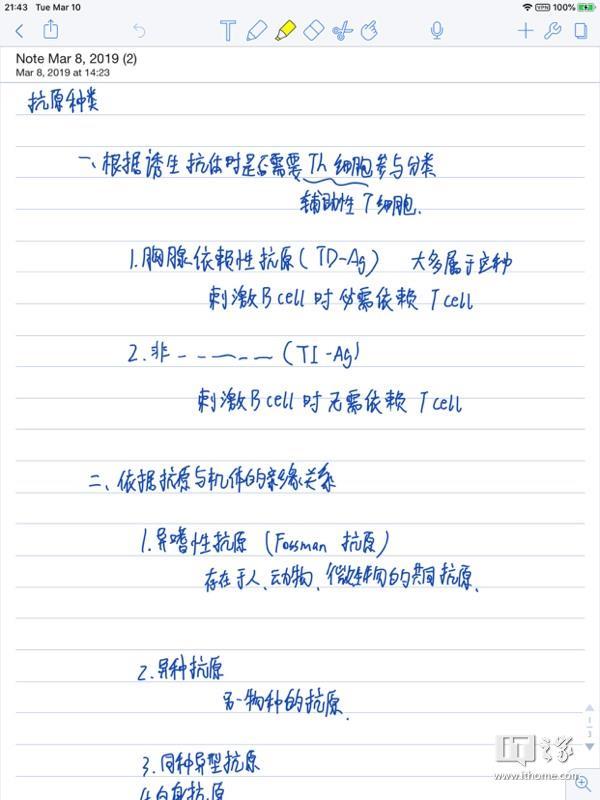 21:43 Tue Mar 10
VPN 100%
T
Note Mar 8, 2019 (2)
Mar 8, 2019 at 14:23
抗原种类
一、根据诱生抗体时是否需要 Th 细胞参与分类
辅助性 T 细胞.
1. 胸腺依赖性抗原 (TD-Ag) 大多属于这种
刺激 B cell 时必需依赖 T cell
2. 非 ------ (TI-Ag)
刺激 B cell 时无需依赖 T cell
二、依据抗原与机体的亲缘关系
1. 异嗜性抗原 (Fossman 抗原)
存在于人、动物、微生物的共同抗原.
2. 异种抗原
另一物种的抗原.
3. 同种异型抗原
4. 自身抗原
1
3
IT之家
www.ithome.com